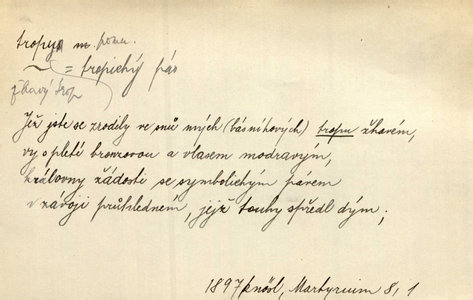 tropy m. pomn.
~ = tropický pás
žhavý trop
Jež jste se zrodily ve snů mých (básníkových) tropu žhavém,
vy s pletí bronzovou a vlasem modravým,
královny žádosti se symbolickým pávem
v závoji průhledném, jejž touhy spředl dým;
1897 Knösl, Martyrium 8, 1